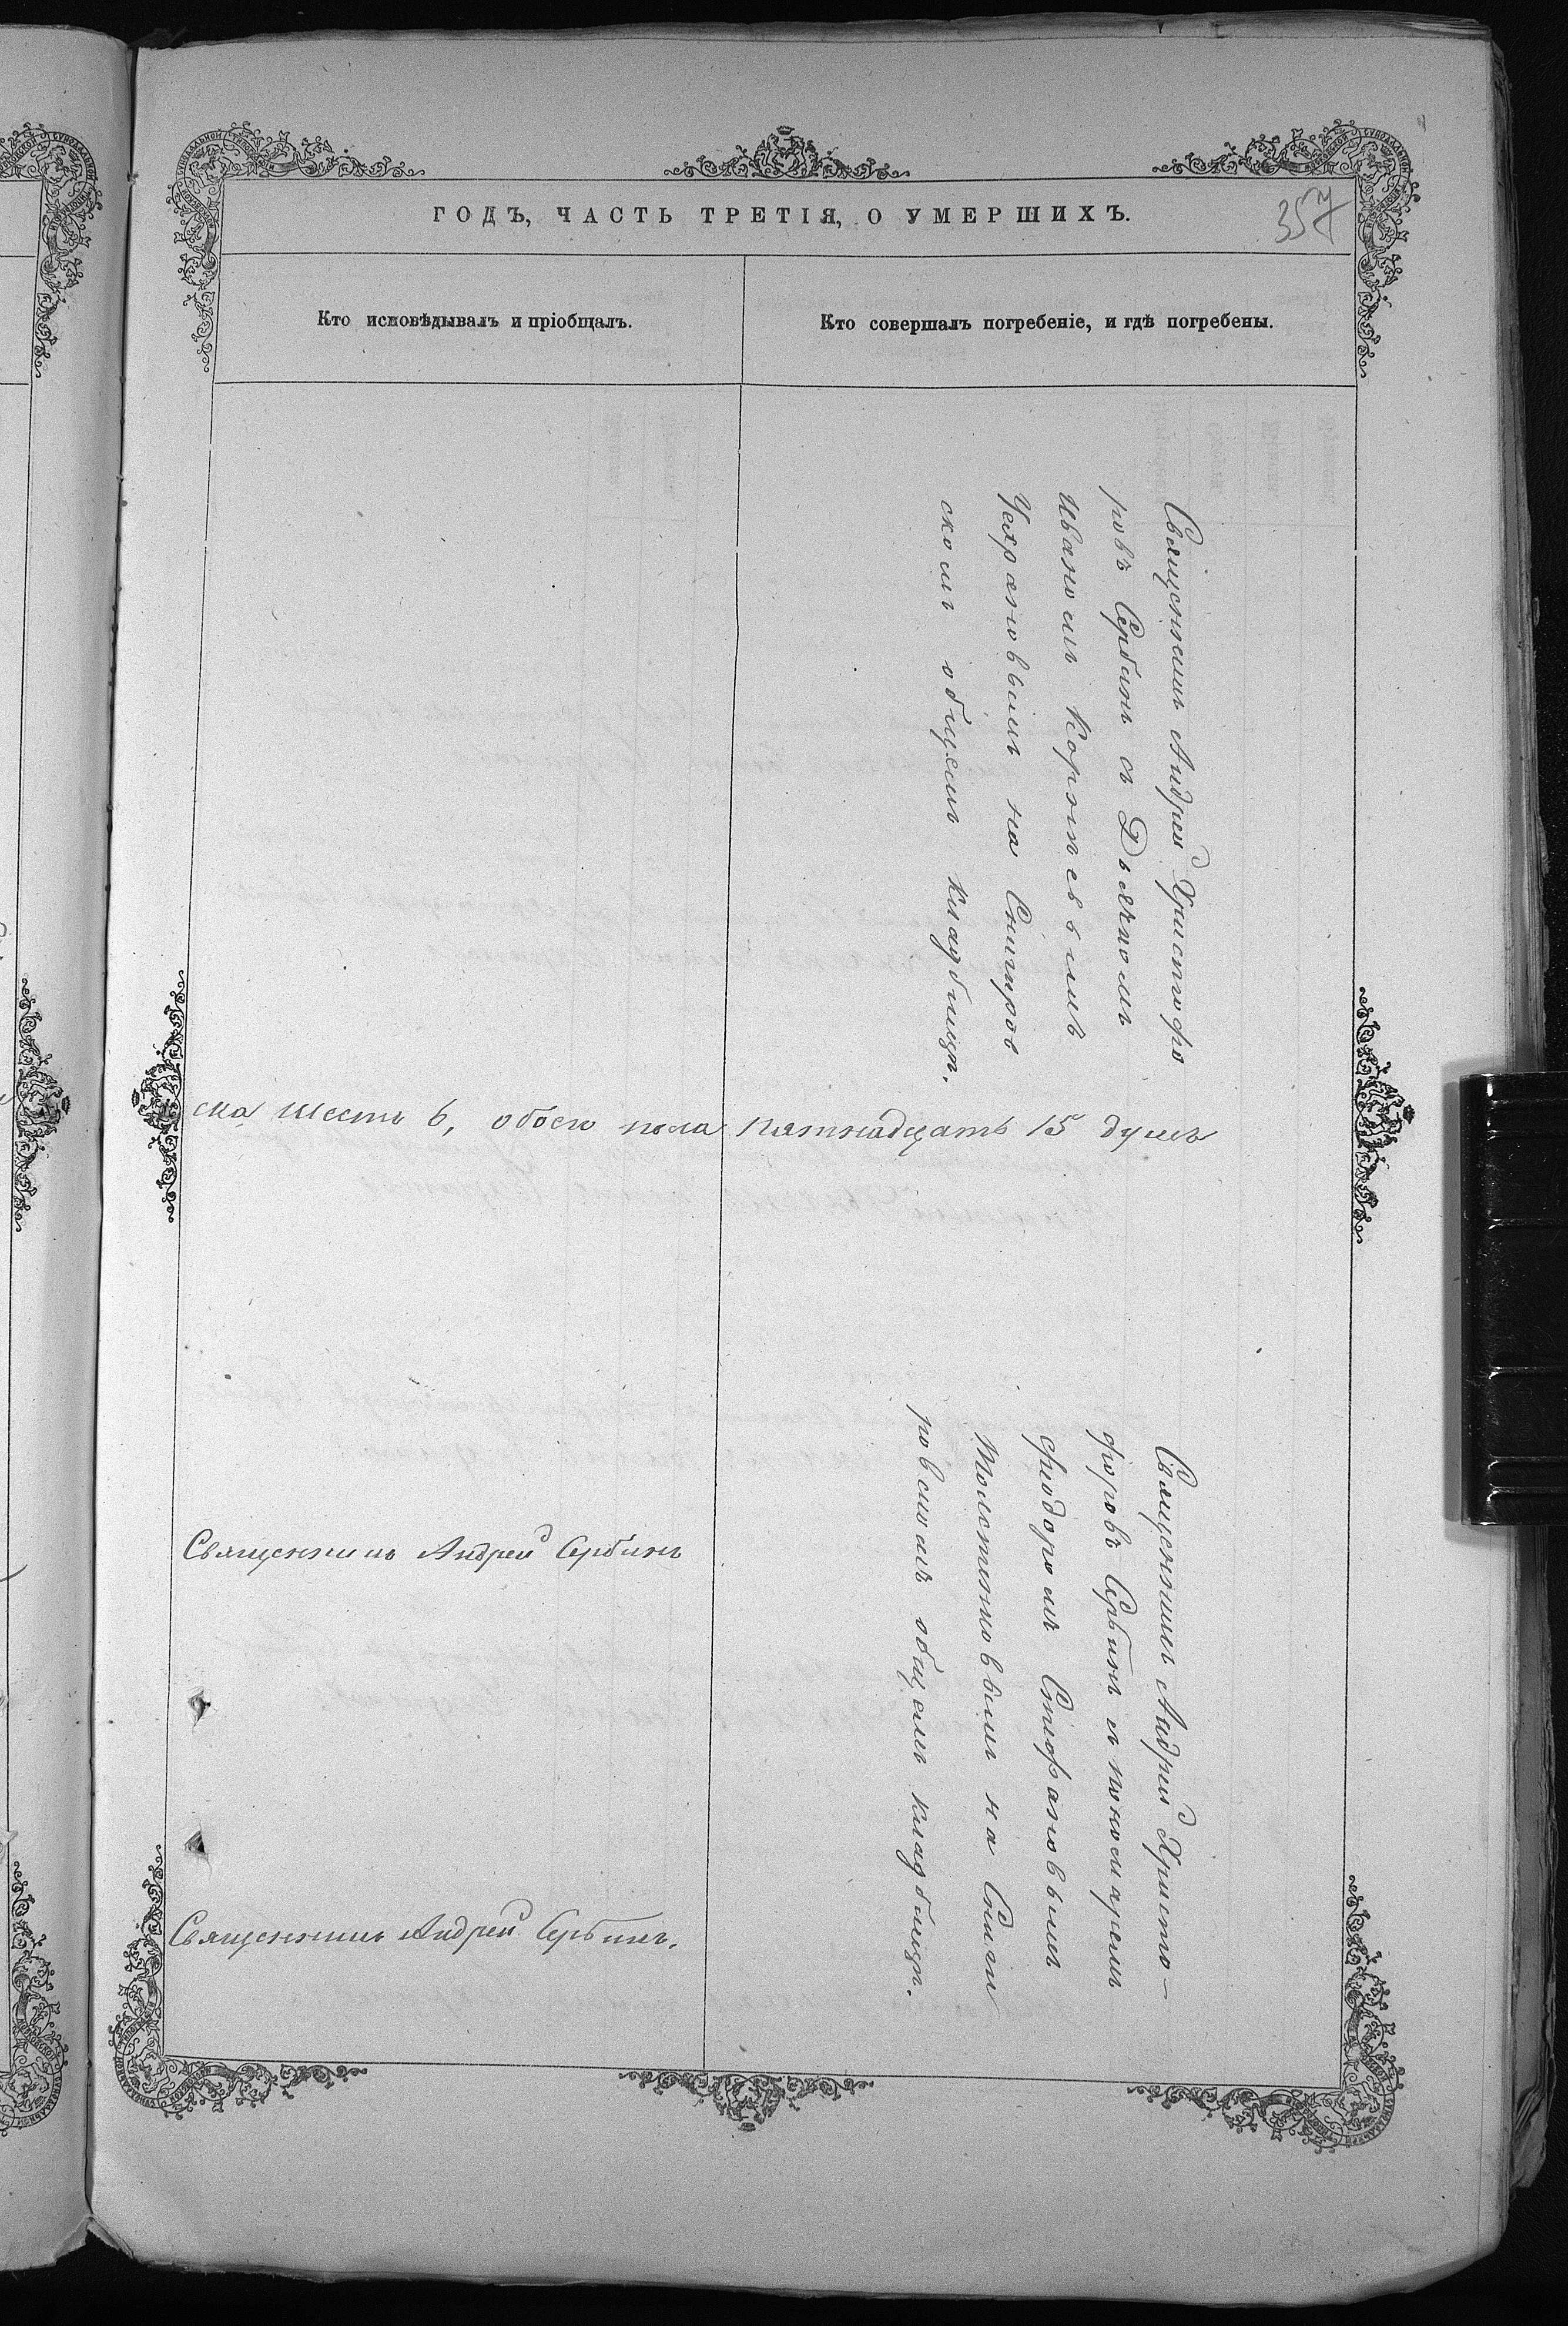 ГОДЪ, ЧАСТЬ ТРЕТІЯ, О УМЕРШИХЪ.
357
Кто исповѣдывалъ и пріобщалъ.
Кто совершалъ погребеніе, и гдѣ погребены.
Священникъ Андрей Христофо
ровъ Сербинъ съ Дьячкомъ
Иваномъ Корнѣевымъ
на Снигиров
скомъ общемъ кладбищѣ.
ска шесть 6, обоего пола пятнадцать 15 душъ
Священникъ Андрей Сербинъ
Священникъ Андрей Христо-
форовъ Сербинъ съ пономаремъ
Фиодоромъ Стефановымъ
на Сниги
ровскомъ общемъ кладбищѣ.
Священникъ Андрей Сербинъ.